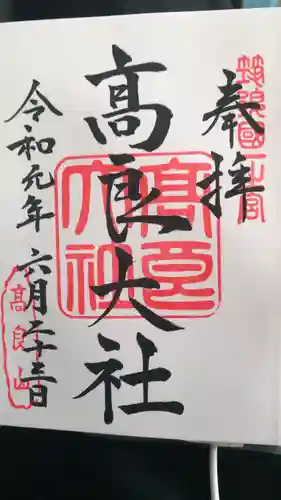 奉拝
筑後國一之宮
髙良大社
髙良大社
令和元年 六月二十三日
高良山